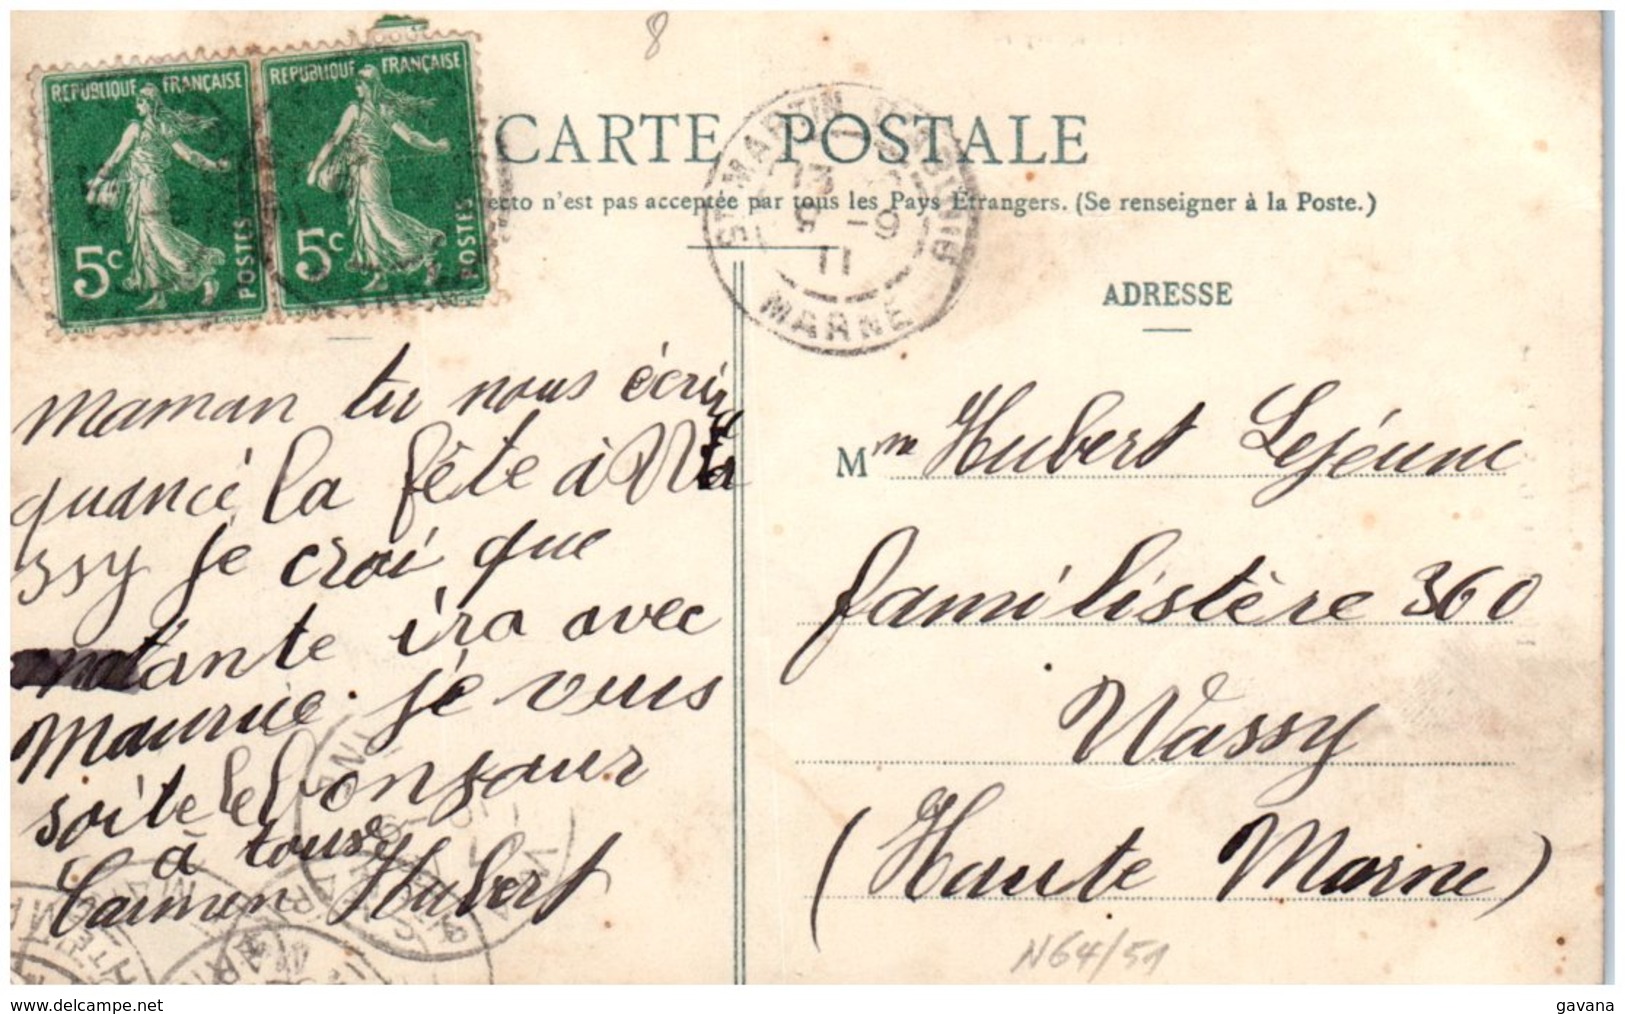 8
REPUBLIQUE FRANÇAISE
5c
POSTES
REPUBLIQUE FRANÇAISE
5c
POSTES
CARTE POSTALE
ecto n'est pas acceptée par tous les Pays Étrangers. (Se renseigner à la Poste.)
ST MARTIN
9 - 9
11
MARNE
ADRESSE
maman tu nous écrir
quance la fête à Wa
ssy je croi que
tante ira avec
Maurice je vous
soite le bonjour
à touse
Carmen Hubert
Mme Hubert Lejéune
familistère 360
Wassy
(Haute Marne)
N64/51
www.delcampe.net
gavana